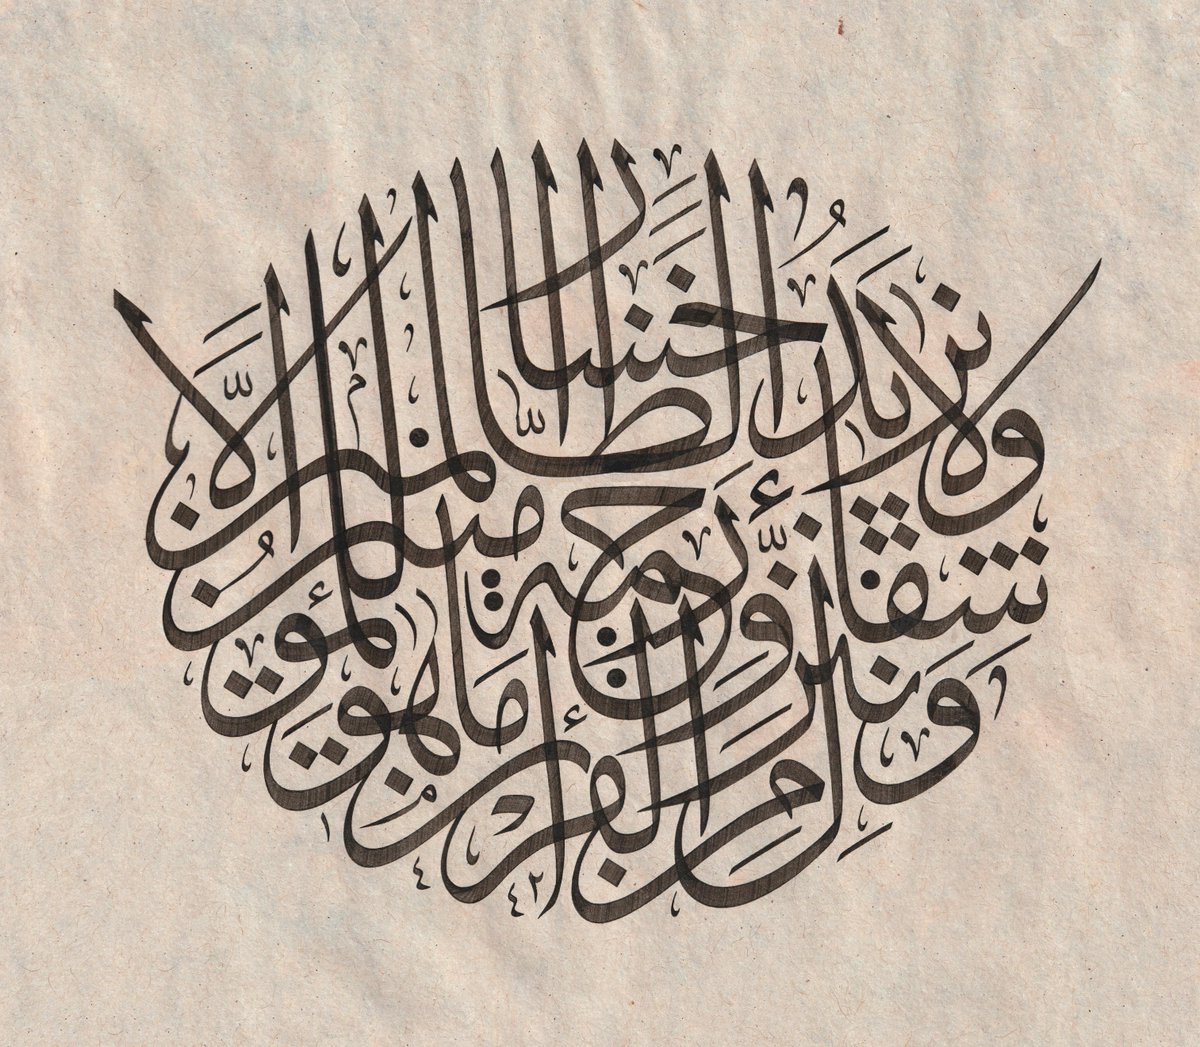 وننزل من القرآن ما هو
شفاء ورحمة للمؤمنين
ولا يزيد الظالمين إلا خسارا
١٤٤٢